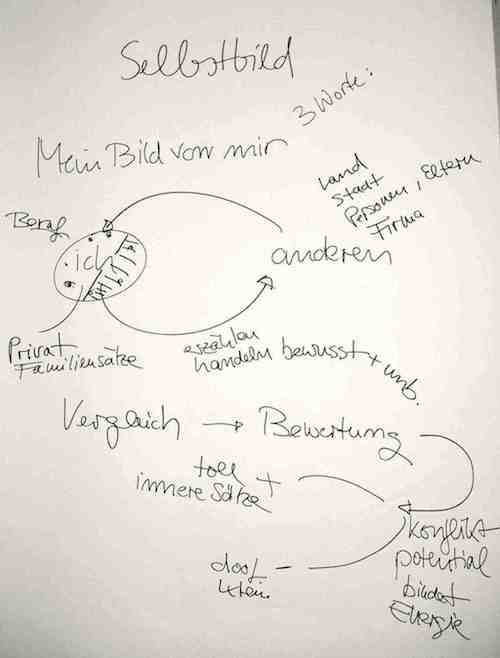 Selbstbild
3 Worte:
Mein Bild von mir
Land
Stadt
Personen, Eltern
Firma
Beruf
ich
anderen
Privat
Familiensätze
erzählen
handeln bewusst + unb.
Vergleich → Bewertung
toll +
innere Sätze
Konflikt
potential
bindet
Energie
doof –
klein